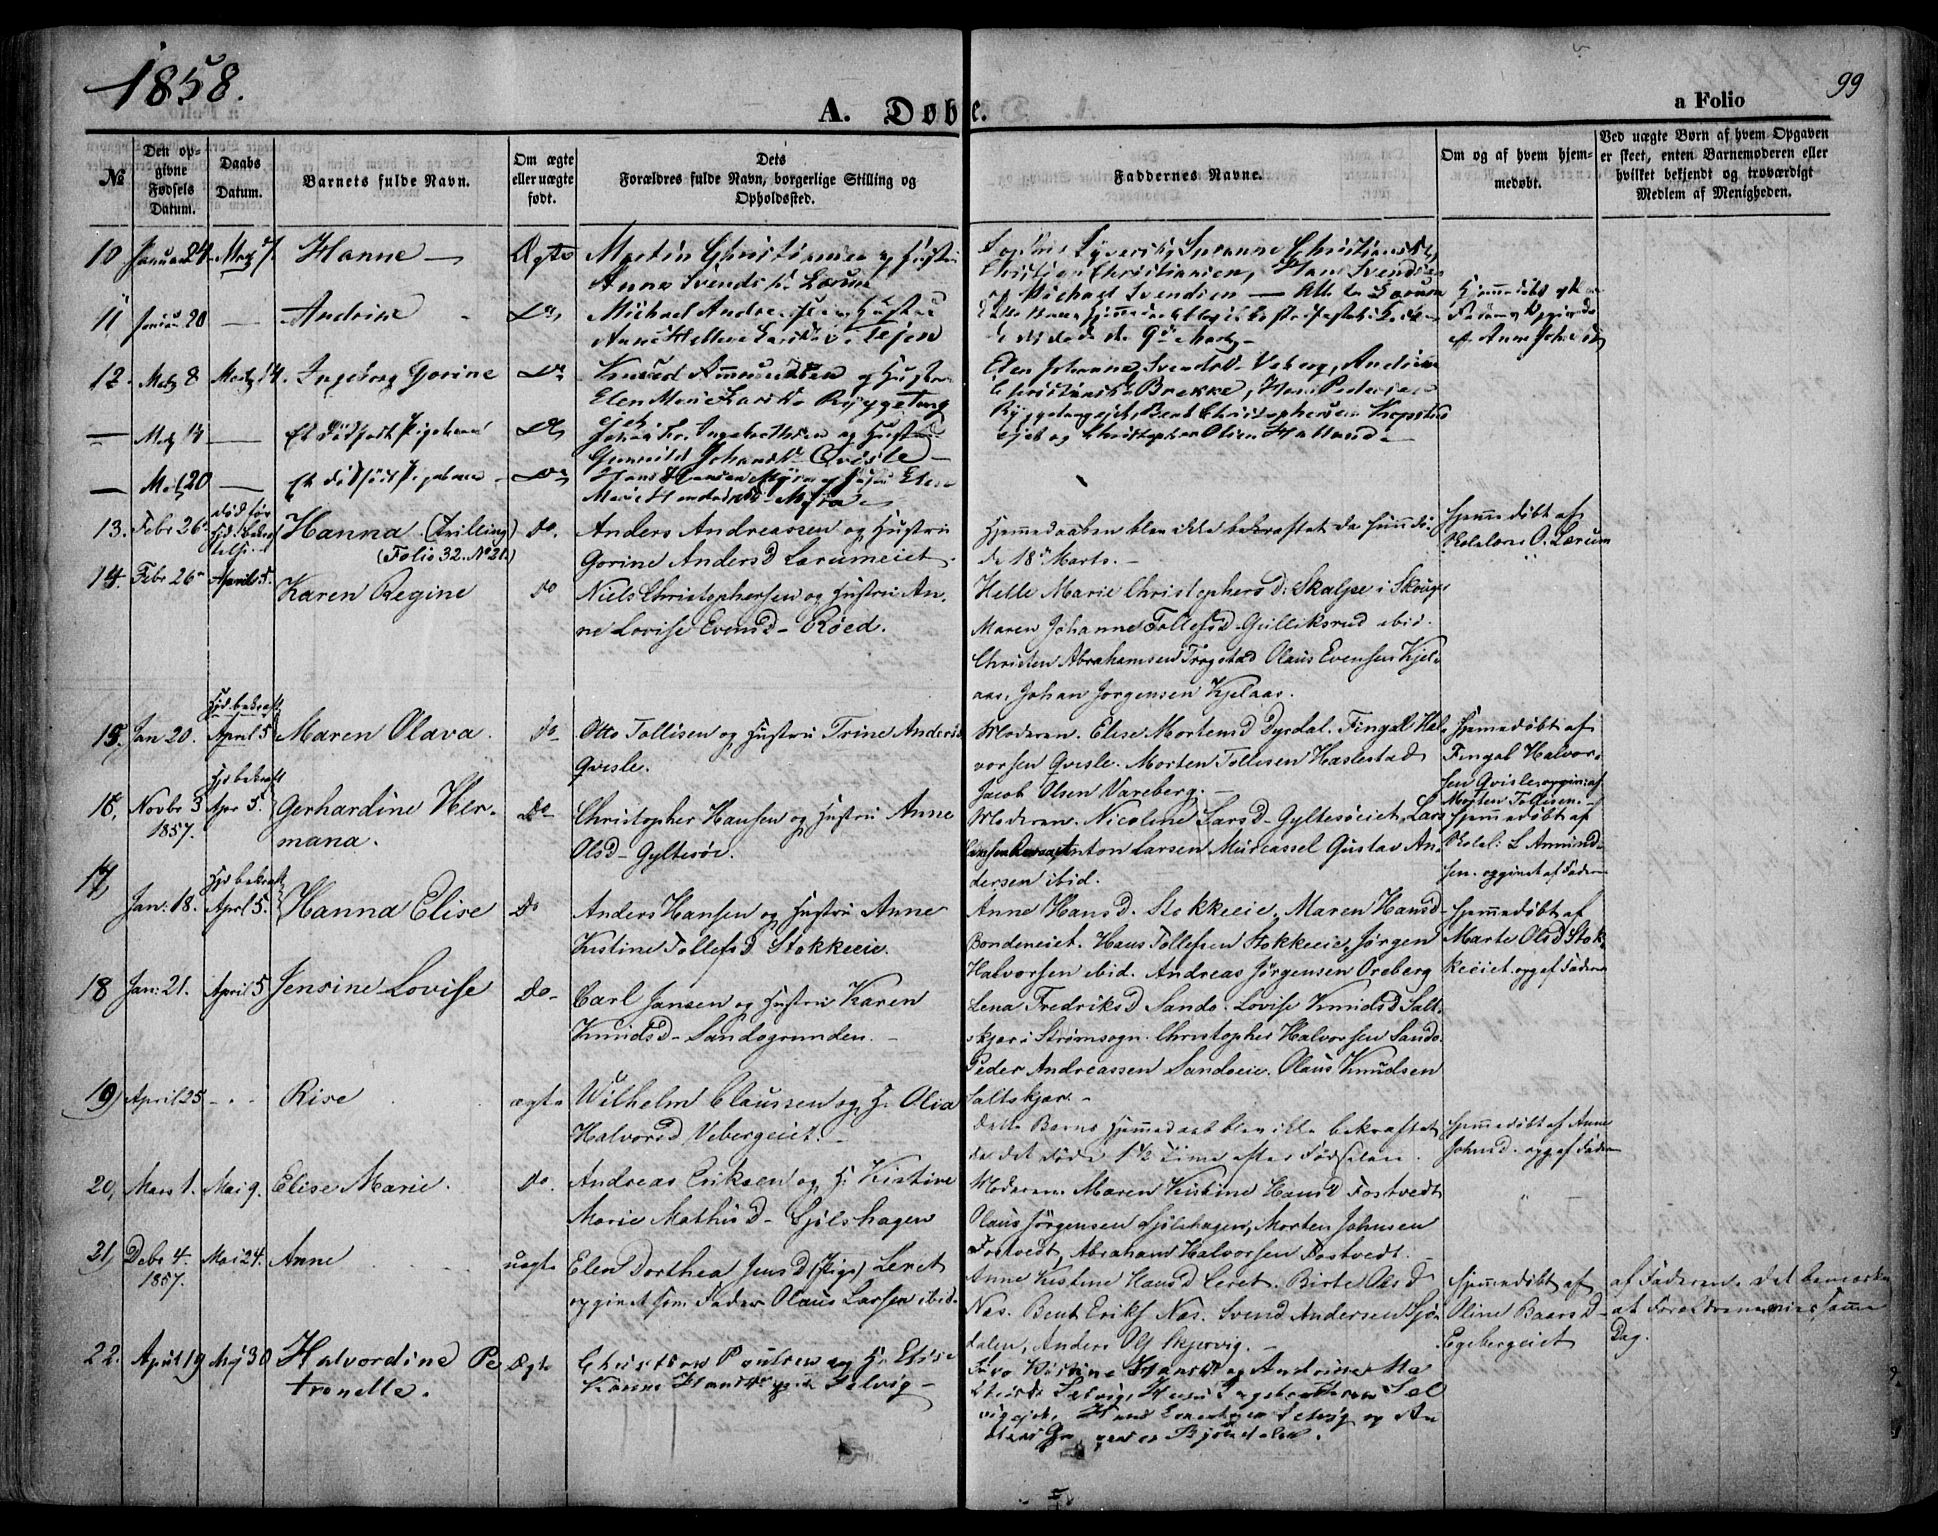 1858.
99
A. Døbte.
a Folio
No
Den opgivne Fødsels Datum.
Daabs Datum.
Barnets fulde Navn.
Om ægte eller uægte født.
Dets Forældres fulde Navn, borgerlige Stilling og Opholdssted.
Faddernes Navne.
Om og af hvem hjemmedøbt.
Ved uægte Børn af hvem Opgaven er skeet, enten Barnemoderen eller hvilket bekjendt og troværdigt Medlem af Menigheden.
10 Januar 24 Hanne Ægte Martin Christiansen og Hustru
Anne Svendsd.
Christian Christiansen, Hans Svendsen
Michael Svendsen
11 Januar 20 — Andrine Do Michael Andreasen Hustru
Anne Helene
Hjemmedøbt
12. Marts 8 Marts 14. Ingeborg Gorine Do Knud Ammundsen og Hustru
Elen Marie Larsd. Ryggetang
ejet
Elen Johanne Svendsd. Veberg, Andrine
Christiansd. Brekke, Hans Pedersen
Ryggetangejet, Bent Christophersen
ejet og Christopher Olsen Halland.
— Marts 14 — Et dødfødt Pigebarn Do Ingebrethsen og Hustru
Gunnild Johansd. Qvisle
— Marts 20 — Et dødfødt Pigebarn Do Hans Hansen Myra og Hustru Elen
Marie
13. Febr 26 død før Hanna (Trilling) Do. Anders Andreassen og Hustru
(Folio 32. No 20.)
Gorine Andersd Lærumeiet
Hjemmedaaben blev ikke bekræftet da hun dø
de 18d Marts.
Hjemmedøbt af
O. Lærum
14. Febr 26 April 5. Karen Regine do Niels Christophersen og Hustru An
ne Lovise Evensd Røed.
Helle Marie Christophersd. Skalpe i Skouge
Maren Johanne Tollefsd Gulliksrud ibid.
Christen Abrahamsen Trogstad Olaus Evensen Kjel
aas, Johan Jørgensen Kjelaas.
15. Jan 20. Hjd. bekræft. April 5 Maren Olava. Do Otto Tollisen og Hustru Trine Andersd
Qvisle.
Moderen. Elise Mortensd Dyrdal. Fingal Hal
vorsen Qvisle. Morten Tollisen Haslestad
Jacob Olsen Vareberg.
Hjemmedøbt af
Fingal Halvor
sen Qvisle opgivet af
Morten Tollisen.
16, Novbr 3 1857. Hjd bekræft Apr 5. Gerhardine Her
mana. Do Christopher Hansen og Hustru Anne
Olsd Gyltesøe.
Moderen. Nicoline Larsd Gyltesøeiet, Lars
Anton Larsen Murcassel Gustav An
dersen ibid.
Hjemmedøbt af
L Ammund
sen. opgivet af Faderen
17, Jan: 18. Hjd bekræft April 5. Hanna Elise Do Anders Hansen og Hustru Anne
Kistine Tollefsd. Stokkeeie.
Anne Hansd. Stokkeeie. Maren Hansd
Bondeneiet. Hans Tollefsen Stokkeeie, Jørgen
Halvorsen ibid. Andreas Jørgensen Oreberg
Hjemmedøbt af
Marte Olsd Stok
keeiet. opg af Faderen
18 Jan: 21. April 5 Jensine Lovise Do Carl Jansen og Hustru Karen
Knudsd Sandøgrunden.
Lena Fredriksd Sandø. Lovise Knudsd Salt
skjær i Strømsogn. Christopher Halvorsen Sandø.
Peder Andreassen Sandøeie. Olaus Knudsen
Saltskjær.
19) April 25 Rise ægte Wilhelm Claussen og H. Olia
Halvorsd Vebergeiet.
Dette Barns Hjemmedaab blev ikke bekræftet
da det døde 1½ Time efter Fødselen.
Hjemmedøbt af Anne
Johnsd. opg af Faderen
20, Mars 1. Mai 9. Elise Marie. do. Andreas Eriksen og H. Kistine
Marie Mathisd Sjølshagen
Moderen. Maren Kistine Hansd Fostvedt
Olaus Jørgensen Sjølshagen, Morten Johnsen
Fostvedt, Abraham Halvorsen Fostvedt.
21, Debr 4. 1857. Mai 24. Anne uægte Elen Dorthea Jensd (Pige) Leret
opgivet som Fader Olaus Larsen ibid.
Anne Kistine Hansd Leret. Birte Olsd
Næs. Bent Eriks. Næs. Svend Andersen Sjø
dalen, Anders Ols Skjervig.
Hjemmedøbt af
Oline Baarsd
Egebergeiet
af Faderen. Det bemærkes
at Forældrene
Dag.
22. April 19 Mai 30 Halvordine Pe
tronelle. Ægte Christian Poulsen og H. Elise
Karine Selvig
Kistine Hansd. og Andrine Ma
Selvig, Hans Ingebrethsen Sel
vigejet, Selvig og An